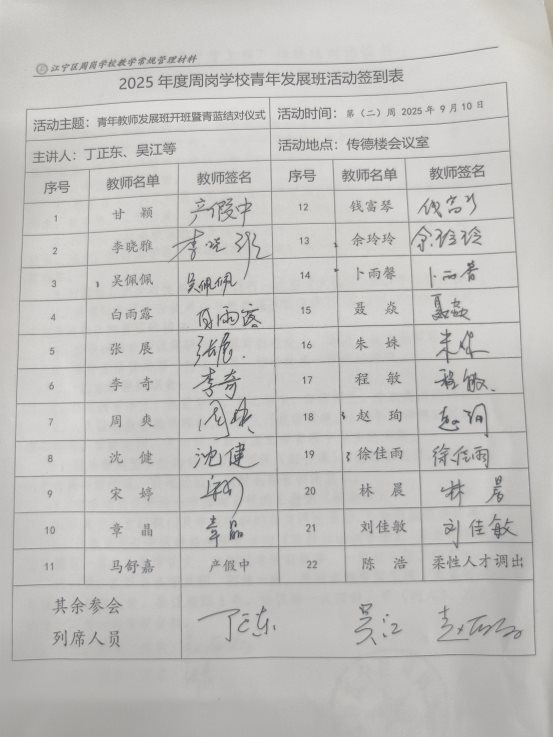 江宁区周岗学校教学常规管理材料
2025 年度周岗学校青年发展班活动签到表
活动主题：青年教师发展班开班暨青蓝结对仪式 活动时间：第（二）周 2025 年 9 月 10 日
主讲人：丁正东、吴江等 活动地点：传德楼会议室
序号 教师名单 教师签名 序号 教师名单 教师签名
1 甘 颖 产假中 12 钱富琴 钱富琴
2 李晓雅 李晓雅 13 余玲玲 余玲玲
3 吴佩佩 吴佩佩 14 卜雨馨 卜雨馨
4 白雨露 白雨露 15 聂 焱 聂焱
5 张 展 张展 16 朱 姝 朱姝
6 李 奇 李奇 17 程 敏 程敏
7 周 爽 周爽 18 赵 珣 赵珣
8 沈 健 沈健 19 徐佳雨 徐佳雨
9 宋 婷 20 林 晨 林晨
10 章 晶 章晶 21 刘佳敏 刘佳敏
11 马舒嘉 产假中 22 陈 浩 柔性人才调出
其余参会
列席人员
丁正东 吴江